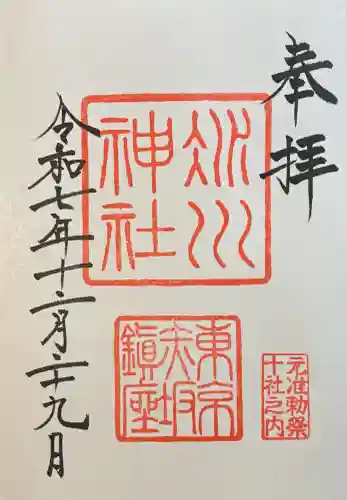 奉拝
氷川
神社
東京
赤坂
鎮座
元准勅祭
十社之内
令和七年十二月二十九日